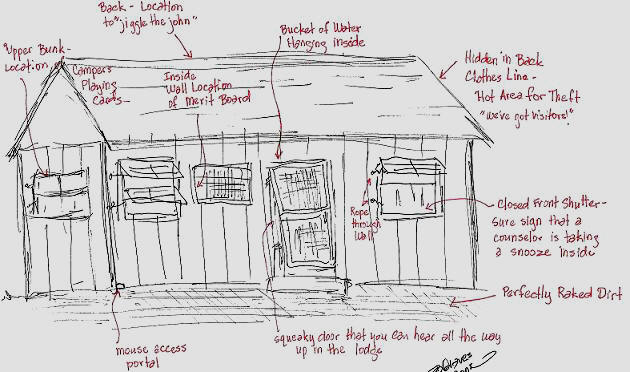 Back - Location
to "jiggle the john"
Bucket of Water
Hanging inside
Upper Bunk-
Location
Campers
Playing
Cards-
Inside
Wall Location
of Merit Board
Hidden in Back
Clothes Line -
Hot Area for Theft
"we've got visitors!"
Rope
through
Wall
Closed Front Shutter-
sure sign that a
counselor is taking
a snooze inside
Perfectly Raked Dirt
mouse access
portal
squeaky door that you can hear all the way
up in the lodge